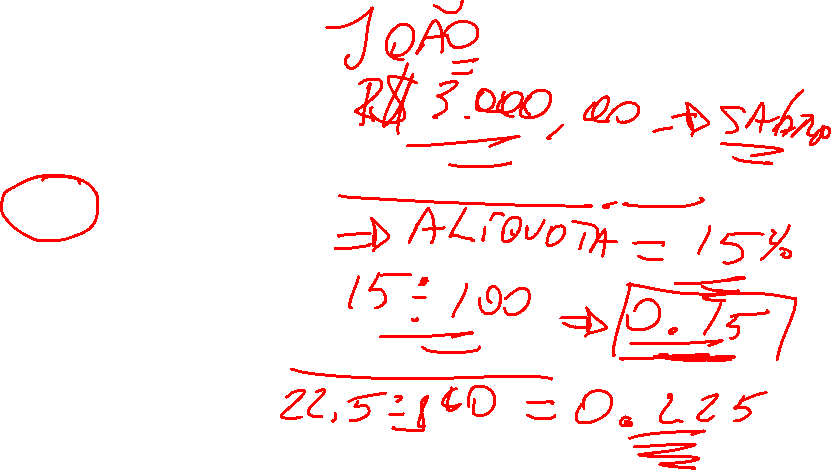 JOÃO
R$ 3.000,00 → SALÁRIO
⇒ ALÍQUOTA = 15%
15 ÷ 100 ⇒ 0.15
22,5 ÷ 100 = 0.225